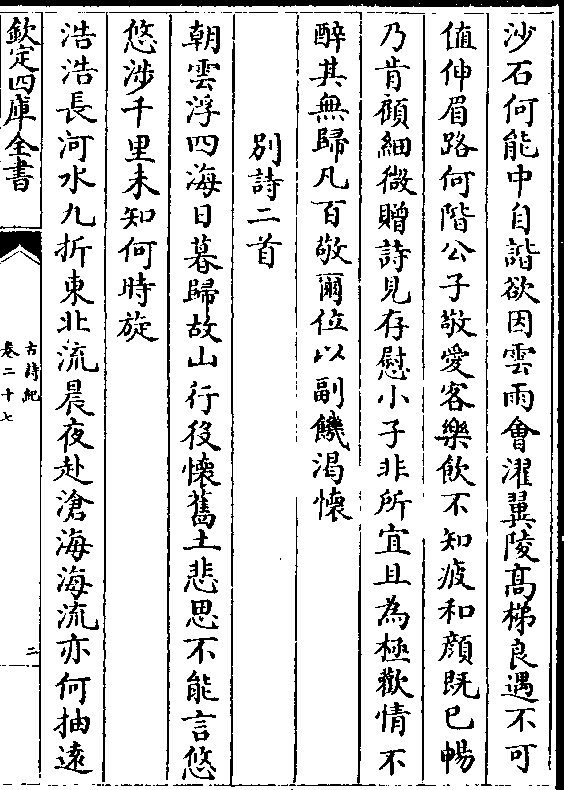 沙石何能中自諧欲因雲雨會濯翼陵髙梯良遇不可
值伸眉路何階公子敬愛客樂飲不知疲和顔既已暢
乃肯顧細微贈詩見存慰小子非所宜且為極歡情不
醉其無歸凡百敬爾位以副饑渴懷
別詩二首
朝雲浮四海日暮歸故山行役懷舊土悲思不能言悠
悠涉千里未知何時旋
浩浩長河水九折東北流晨夜赴滄海海流亦何抽遠
欽定四庫全書
古詩紀
卷二十七
二